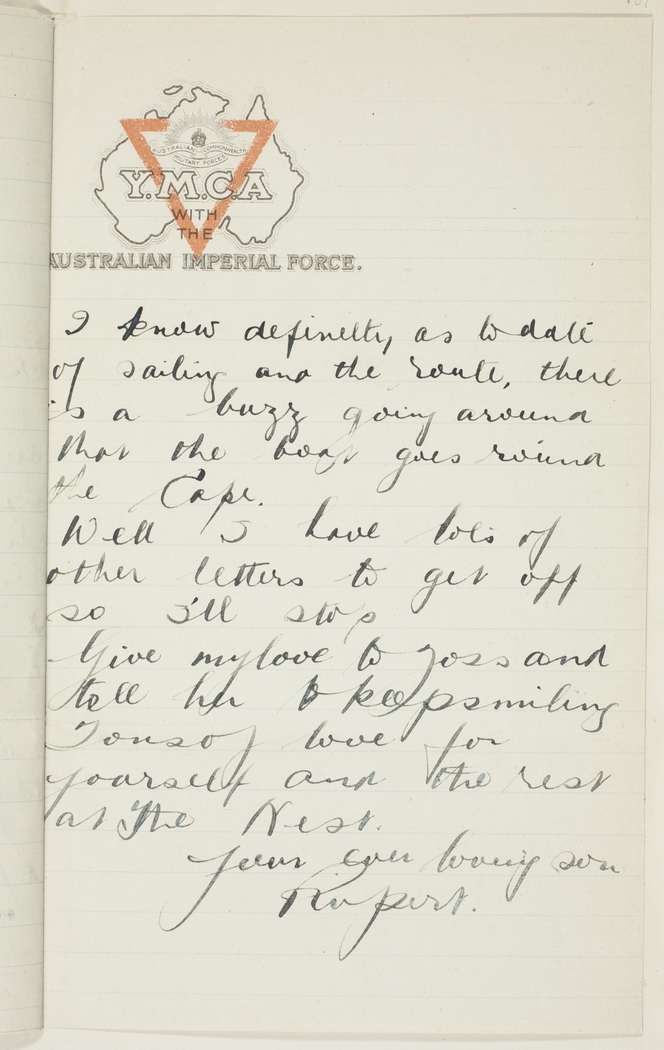 AUSTRALIAN COMMONWEALTH
MILITARY FORCES
Y.M.C.A
WITH
THE
AUSTRALIAN IMPERIAL FORCE.
I know definelty, as to date
of sailing and the route, there
is a buzz going around
that the boat goes round
the Cape.
Well I have lots of
other letters to get off
so I'll stop
Give my love to Joss and
tell her to keep smiling
Tons of love for
yourself and the rest
at The Nest.
Your ever loving son
Rupert.